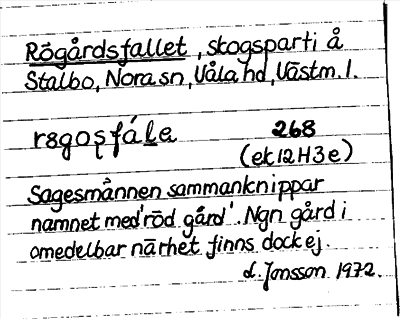 Rögårdsfallet, skogsparti å
Stalbo, Nora sn, Våla hd, Västm. l.
rɞgoʂfá̱le
268
(ek 12H3e)
Sagesmännen sammanknippar
namnet med 'röd gård'. Ngn gård i
omedelbar närhet finns dock ej.
L. Jonsson 1972.